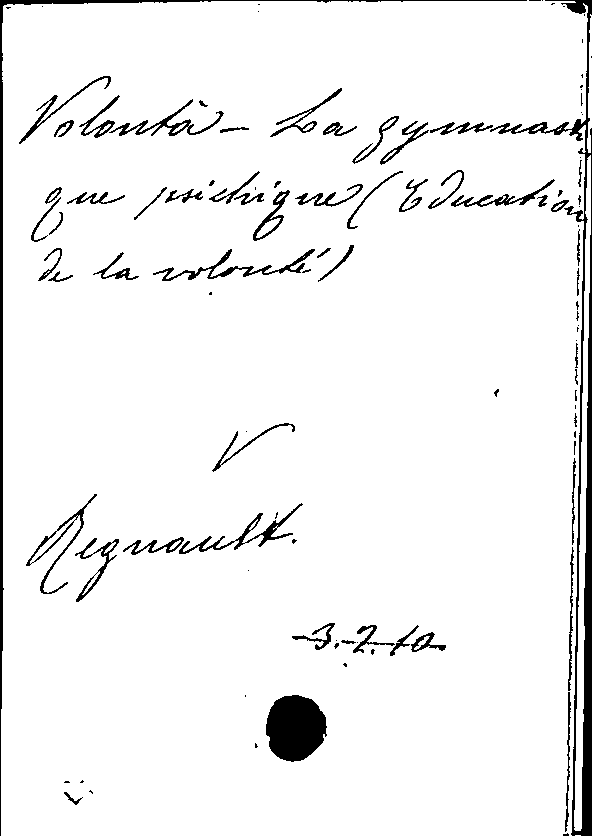 Volontà - La gymnasti
que psichique (Education
de la volonté)
V
Regnault.
3.2.10.